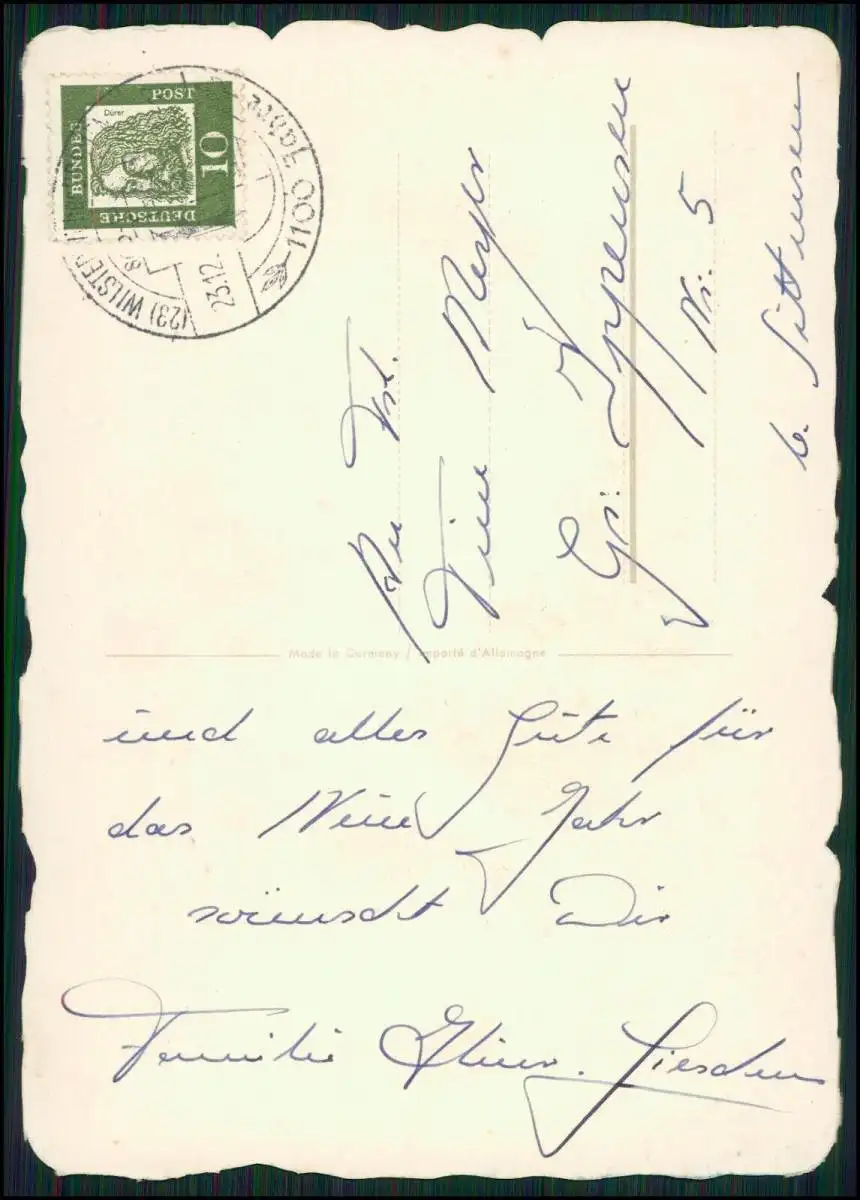 DEUTSCHE
BUNDES
POST
10
Dürer
1100 Jahre
(23) WILSTER
23.12.
An Frl.
Tine Meyer
Gr. Ippensen
Nr. 5
b. Sittensen
Made in Germany / Importé d'Allemagne
und alles Gute für
das Neue Jahr
wünscht Dir
Familie